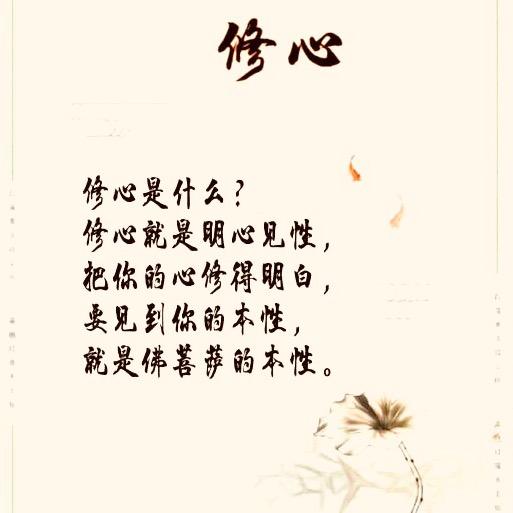 修心
修心是什么？
修心就是明心见性，
把你的心修得明白，
要见到你的本性，
就是佛菩萨的本性。